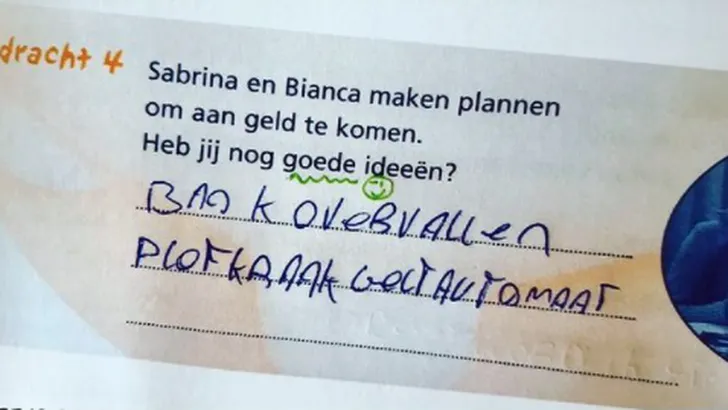 dracht 4
Sabrina en Bianca maken plannen
om aan geld te komen.
Heb jij nog goede ideeën?
BAD K OVERVALLEN
PLOFKRAAK GELTAUTOMAAT